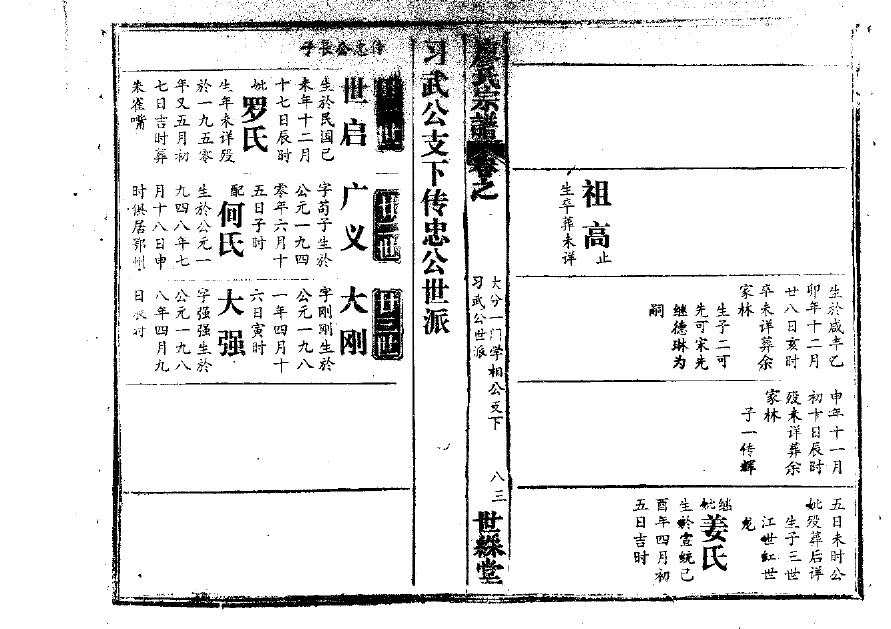 祖高
止
生卒葬未详
生於咸丰乙
卯年十二月
廿八日亥时
卒未详葬余
家林
生子二可
先可宋先
继德琳为
嗣
申年十一月
初十日辰时
殁未详葬余
家林
子一传辉
五日未时公
妣殁葬后详
生子三世
江世红世
龙
继
妣
姜氏
生於宣统己
酉年四月初
五日吉时
廖氏宗谱
卷之
大分一门学相公支下
习武公世派
八三
世綵堂
习武公支下传忠公世派
传忠公长子
世
世启
生於民国己
未年十二月
十七日辰时
妣
罗氏
生年未详殁
於一九五零
年又五月初
七日吉时葬
朱雀嘴
廿二世
广义
字荀子生於
公元一九四
零年六月十
五日子时
配
何氏
生於公元一
九四八年七
月十八日申
时俱居鄂州
廿三世
大刚
字刚刚生於
公元一九八
一年四月十
六日寅时
大强
字强强生於
公元一九八
八年四月九
日辰时